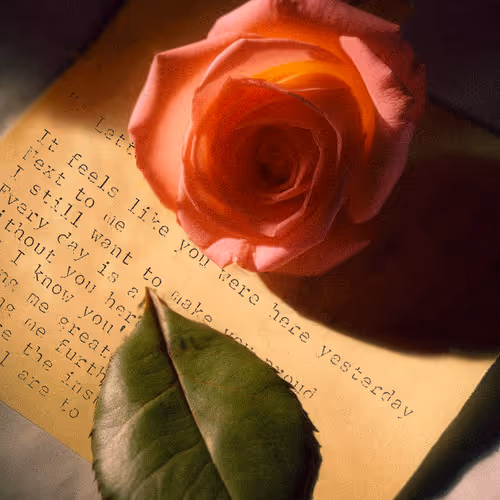 Lett
It feels like you were here yesterday
Next to me
I still want to make you proud
Every day is a
ithout you her
I know you'
me great
me furth
the ins
are to